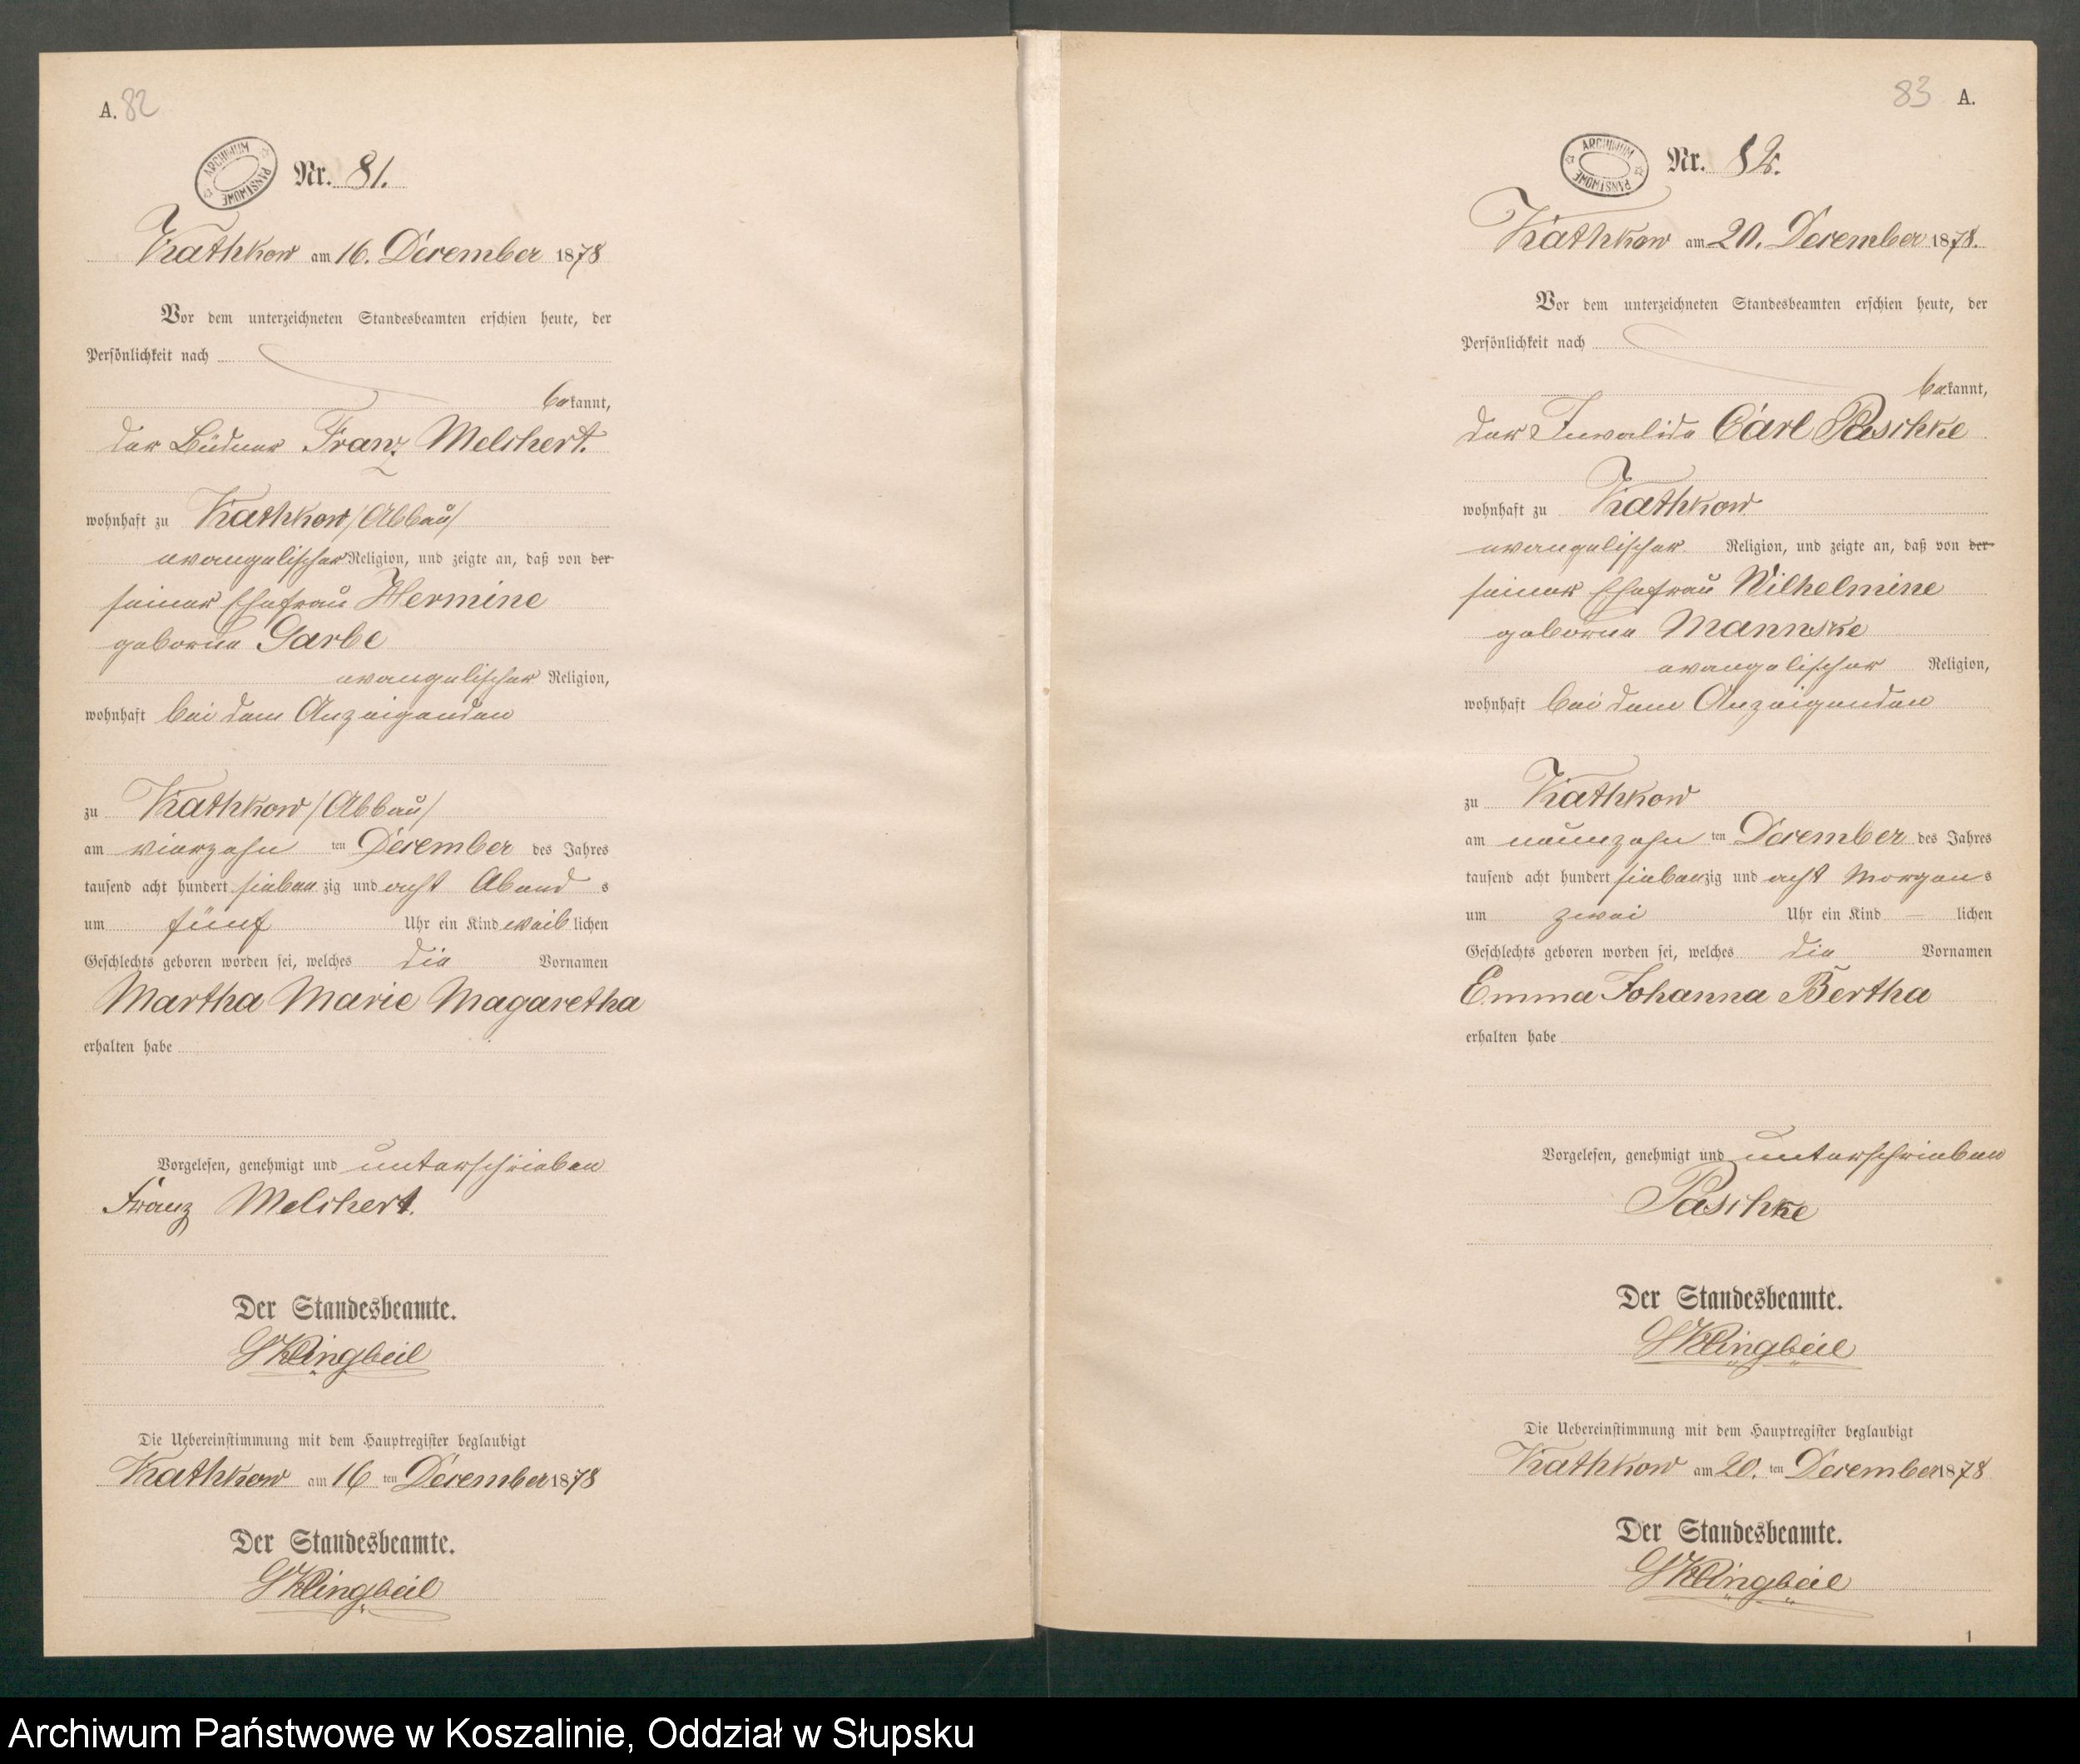 A. 82
ARCHIWUM PAŃSTWOWE
Nr. 81.
Kathkow am 16. December 1878
Vor dem unterzeichneten Standesbeamten erschien heute, der
Persönlichkeit nach
bekannt,
der Büdner Franz Melchert.
wohnhaft zu Kathkow /Abbau/
evangelischer Religion, und zeigte an, daß von der
seiner Ehefrau Hermine
geborne Garbe
evangelischer Religion,
wohnhaft bei dem Anzeigenden
zu Kathkow /Abbau/
am vierzehn ten December des Jahres
tausend acht hundert siebenzig und acht Abend s
um fünf Uhr ein Kind weiblichen
Geschlechts geboren worden sei, welches die Vornamen
Martha Marie Magaretha
erhalten habe
Vorgelesen, genehmigt und unterschrieben
Franz Melchert.
Der Standesbeamte.
Klingbeil
Die Uebereinstimmung mit dem Hauptregister beglaubigt
Kathkow am 16 ten December 1878
Der Standesbeamte.
Klingbeil
83 A.
ARCHIWUM PAŃSTWOWE
Nr. 82.
Kathkow am 20. December 1878.
Vor dem unterzeichneten Standesbeamten erschien heute, der
Persönlichkeit nach
bekannt,
der Invalide Carl Paschke
wohnhaft zu Kathkow
evangelischer Religion, und zeigte an, daß von der
seiner Ehefrau Wilhelmine
geborne Mannske
evangelischer Religion,
wohnhaft bei dem Anzeigenden
zu Kathkow
am neunzehn ten December des Jahres
tausend acht hundert siebenzig und acht Morgen s
um zwei Uhr ein Kind — lichen
Geschlechts geboren worden sei, welches die Vornamen
Emma Johanna Bertha
erhalten habe
Vorgelesen, genehmigt und unterschrieben
Paschke
Der Standesbeamte.
Klingbeil
Die Uebereinstimmung mit dem Hauptregister beglaubigt
Kathkow am 20. ten December 1878
Der Standesbeamte.
Klingbeil
1
Archiwum Państwowe w Koszalinie, Oddział w Słupsku